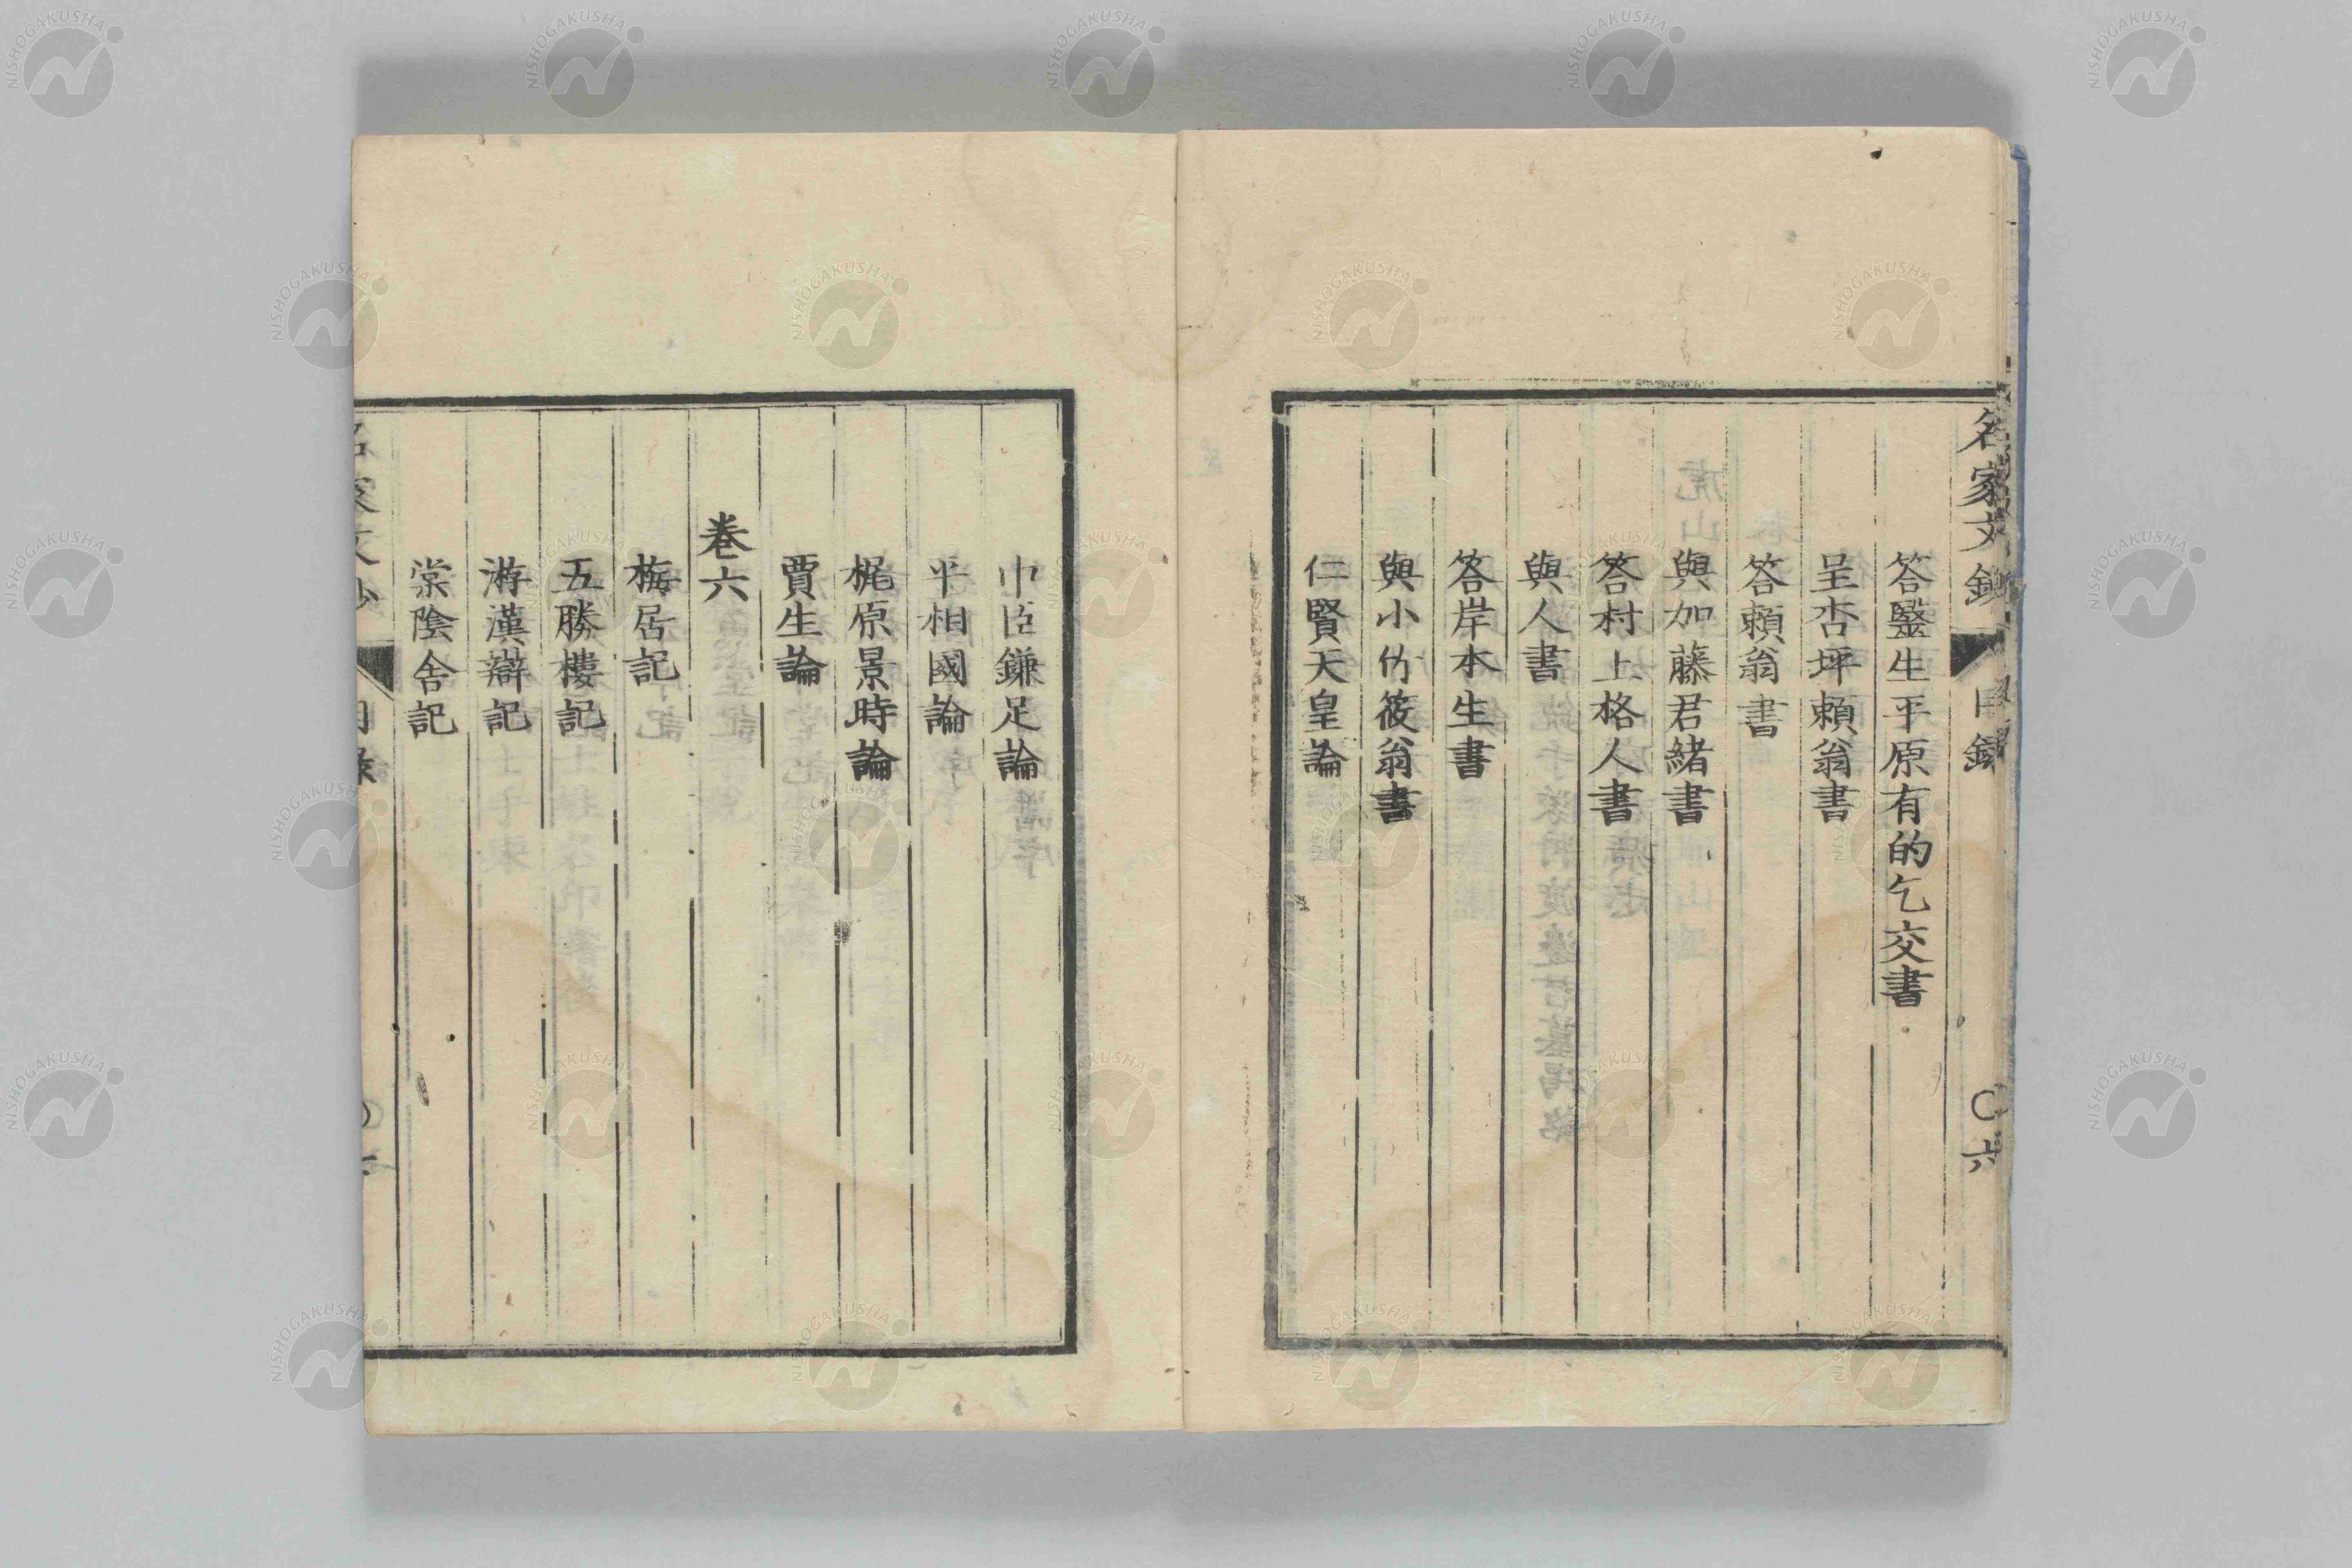 名家文鈔 目錄 〇六
答毉生平原有的乞交書
呈杏坪賴翁書
答賴翁書
與加藤君緒書
答村上格人書
與人書
答岸本生書
與小竹筱翁書
仁賢天皇論
中臣鎌足論
平相國論
梶原景時論
賈生論
巻六
梅居記
五勝樓記
游漢辯記
棠陰舍記
名家文鈔 目錄
NISHOGAKUSHA